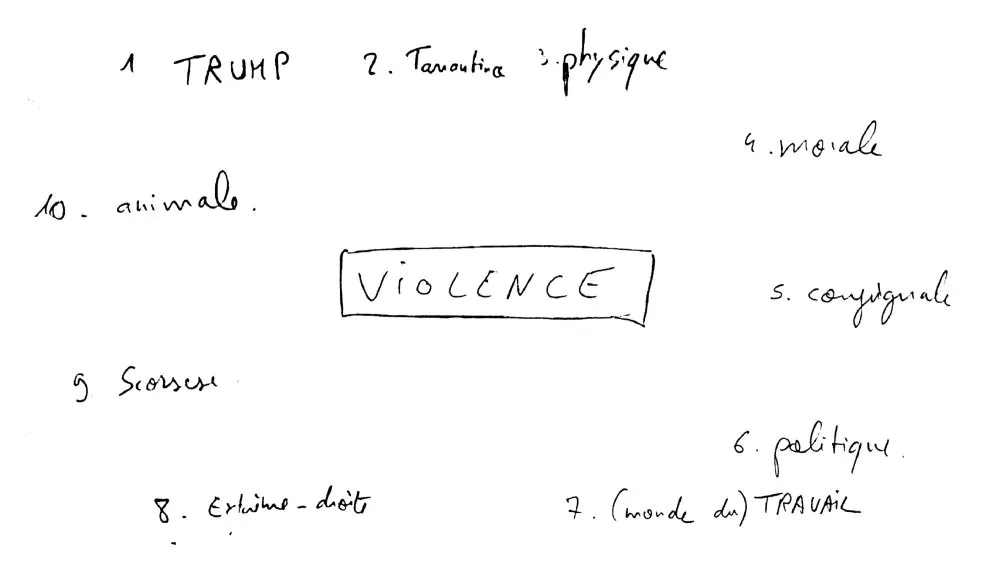 1 TRUMP
2. Tarantino
3. physique
4. morale
5. conjuguale
6. politique.
7. (monde du) TRAVAIL
8. Extrême-droite
9 Scorsese
10. animale.
VIOLENCE